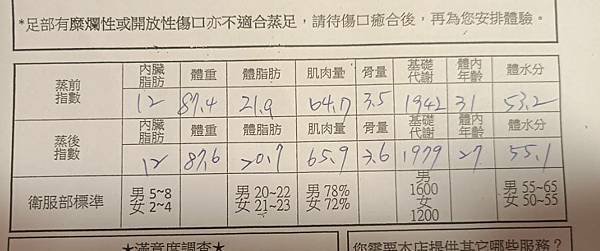 *足部有糜爛性或開放性傷口亦不適合蒸足，請待傷口癒合後，再為您安排體驗。
蒸前指數 內臟脂肪 體重 體脂肪 肌肉量 骨量 基礎代謝 體內年齡 體水分
12 87.4 21.9 64.7 3.5 1942 31 53.2
蒸後指數 內臟脂肪 體重 體脂肪 肌肉量 骨量 基礎代謝 體內年齡 體水分
12 87.6 20.7 65.9 3.6 1979 27 55.1
衛服部標準 男 5~8 女 2~4 男 20~22 女 21~23 男 78% 女 72% 男 1600 女 1200 男 55~65 女 50~55
★滿意度調查★
您需要本店提供其它哪些服務？